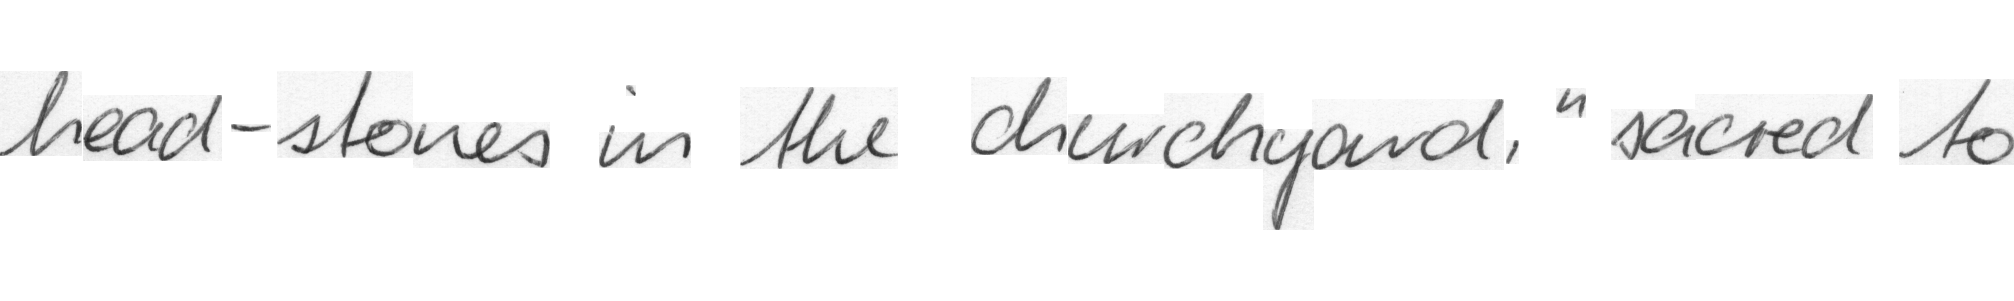 head-stones in the churchyard, "sacred to